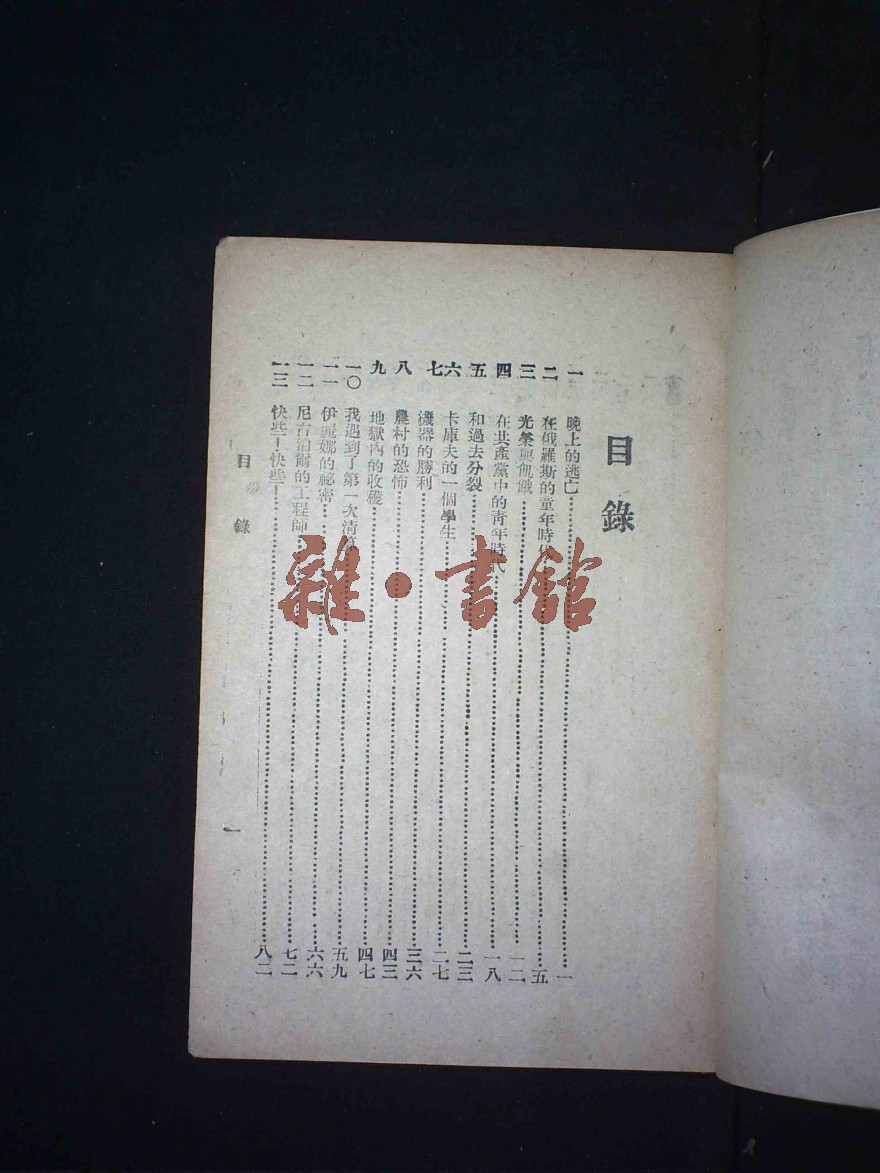 目錄
一 晚上的逃亡 一
二 在俄羅斯的童年時代 五
三 光榮與飢餓 一二
四 在共產黨中的靑年時代 一八
五 和過去分裂 二三
六 卡庫夫的一個學生 二七
七 機器的勝利 三六
八 農村的恐怖 四三
九 地獄內的收穫 四七
一〇 我遇到了第一次清算 五九
一一 伊麗娜的祕密 六六
一二 尼古泊爾的工程師 七二
一三 快些！快些！ 八二
目錄
一
雜·書館